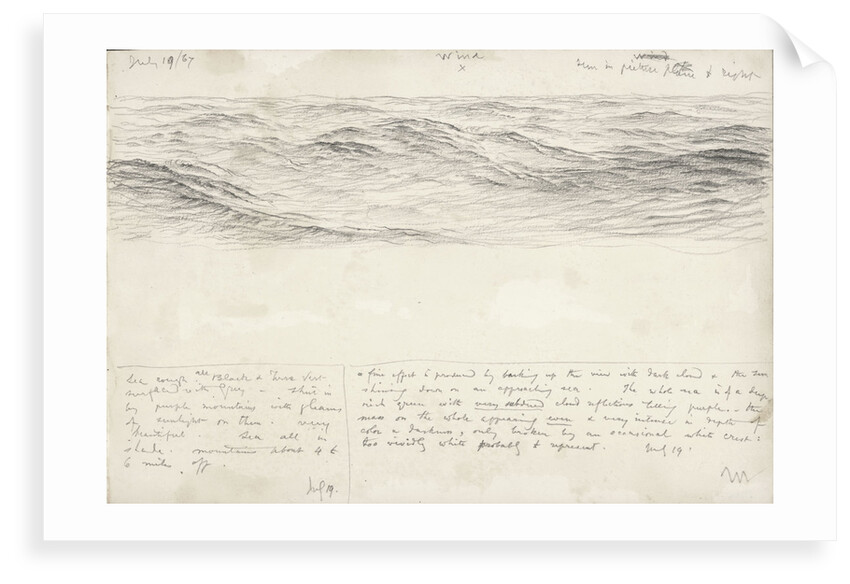 July 19/67
Wind
x
wind
Sun in picture plane & right
Sea rough all Black & Terra Vert
surfaced with Grey - Shut in
by purple mountains with gleams
of sunlight on them. very
beautiful. Sea all in
shade. mountains about 4 to
6 miles off.
July 19.
a fine effect is produced by backing up the view with dark cloud & the sun
shining down on an approaching sea. The whole sea is of a deep
rich green with very subdued cloud reflections purple - the
mass on the whole appearing even & very intense a depth of
color & darkness, only broken by an occasional white crest:
too vividly white probably to represent. July 19.